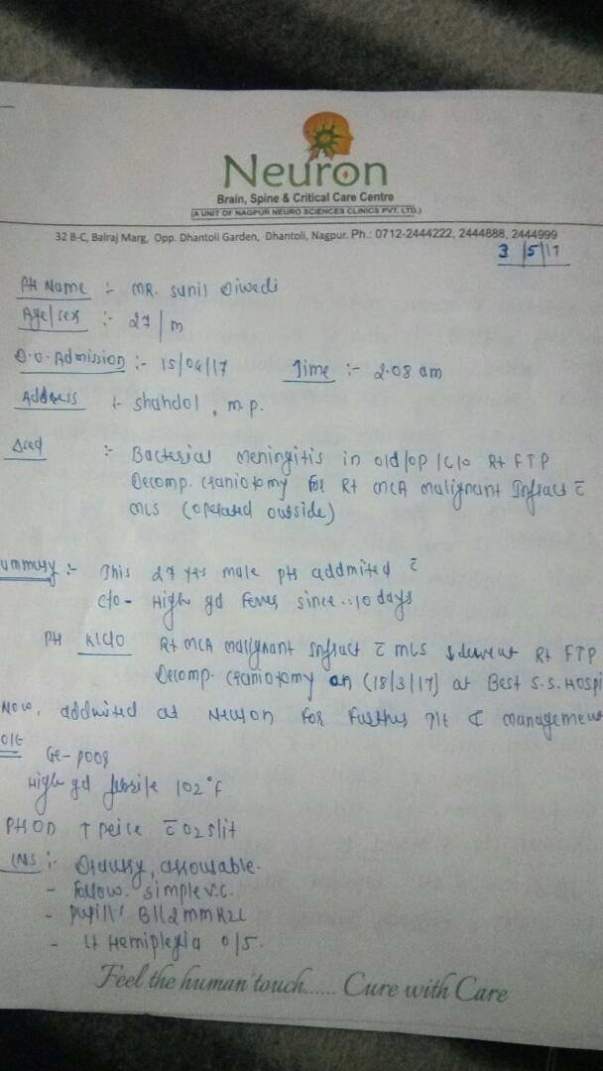 Neuron
Brain, Spine & Critical Care Centre
(A UNIT OF NAGPUR NEURO SCIENCES CLINICS PVT. LTD.)
32 B-C, Balraj Marg, Opp. Dhantoli Garden, Dhantoli, Nagpur. Ph.: 0712-2444222, 2444888, 2444999
3/5/17
Pt Name :- MR. Sunil Diwedi
Age/sex :- 27/m
D.O. Admission :- 15/04/17 Time :- 2.08 am
Address :- Shahdol, m.p.
:- Bacterial meningitis in old/op/c/o Rt FTP
Decomp. craniotomy for Rt MCA malignant Infract c̄
MLS (operated outside)
ummury :- This 27 yrs male pts addmited c̄
c/o - High gd fever since 10 days
PH K/C/O Rt MCA malignant Infract c̄ MLS Rt FTP
Decomp. craniotomy on (18/3/17) at Best S.S. Hospi
Now, addmited at Neuron for further & management
O/E
GC-poor
High gd febrile 102°F
PHOD ↑ c̄ O2 5lit
CNS :- Drowsy, arousable.
- follow. simple v.c.
- pupill: B/L 2mm
- Lt Hemiplegia 0/5.
Feel the human touch...... Cure with Care